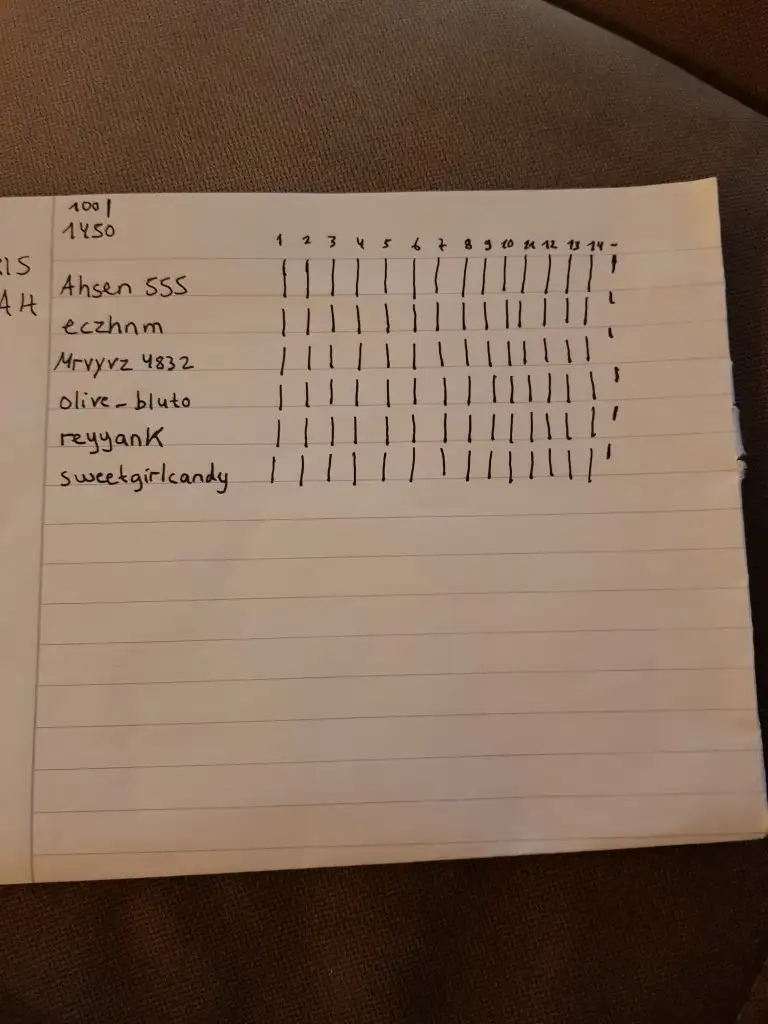 100|
1450
1 2 3 4 5 6 7 8 9 10 11 12 13 14 -
IS
AH
Ahsen 555 | | | | | | | | | | | | | | '
eczhnm | | | | | | | | | | | | | | '
Mrvyvz 4832 | | | | | | | | | | | | | | '
olive_bluto | | | | | | | | | | | | | | '
reyyanK | | | | | | | | | | | | | | '
sweetgirlcandy | | | | | | | | | | | | | | '